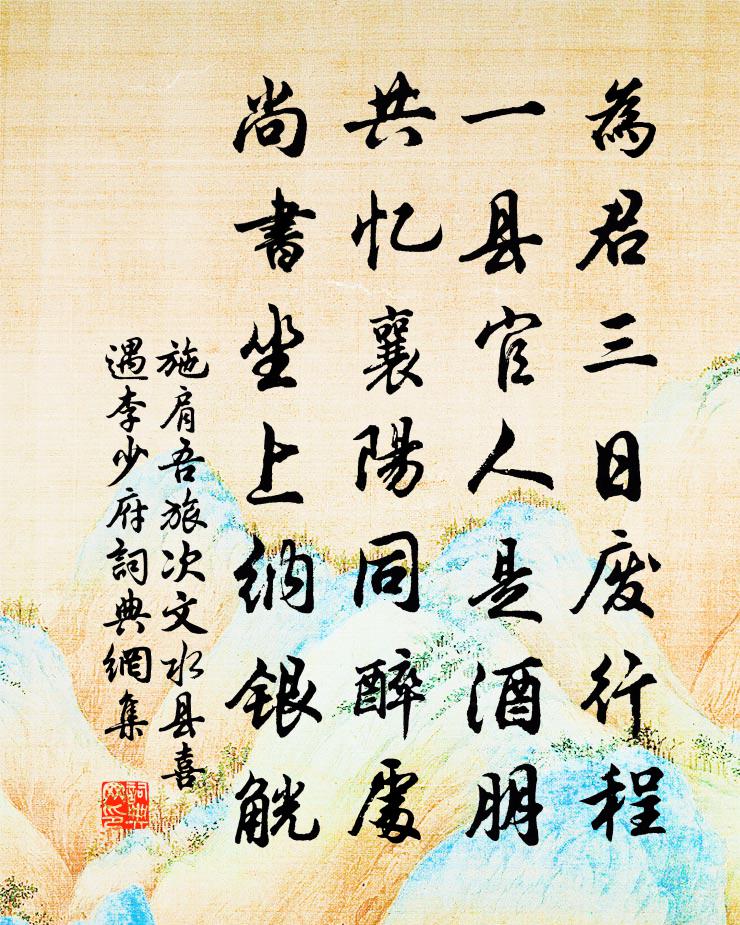 為君三日废行程
一县官人是酒朋
共忆襄陽同醉處
尚書坐上纳银觥
施肩吾旅次文水县喜
遇李少府詞典網集